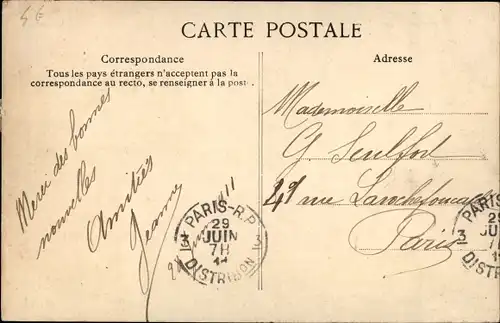 4 €
CARTE POSTALE
Correspondance
Tous les pays étrangers n'acceptent pas la
correspondance au recto, se renseigner à la poste.
Merci des bonnes
nouvelles
Amitiés
Jeanne
Adresse
Mademoiselle
G.
rue Larochefoucauld
Paris
PARIS-R.P.
29
JUIN
7H
11
DISTRIBON
PARIS
29
7
11
DISTRI